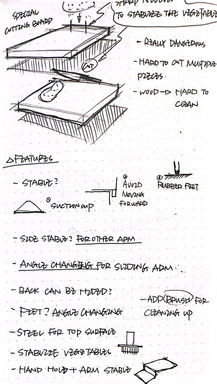 SPECIAL
CUTTING BOARD
SHARP NEEDLES
TO STABILIZE THE VEGETABLE
- REALLY DANGEROUS
- HARD TO CUT MULTIPLE
PIECES
- WOOD → HARD TO
CLEAN
CUT
△ FEATURES
- STABLE?
① AVOID
MOVING
FORWARD
② RUBBER FEET
SUCTION CUP
- SIDE STABLE? FOR OTHER ARM
- ANGLE CHANGING FOR SLIDING ARM.
- BACK CAN BE HIDED?
- FEET? ANGLE CHANGING
- ADD BRUSH FOR
CLEANING UP
- STEEL FOR TOP SURFACE
- STABILIZE VEGETABLE
- HAND HOLD + ARM STABLE